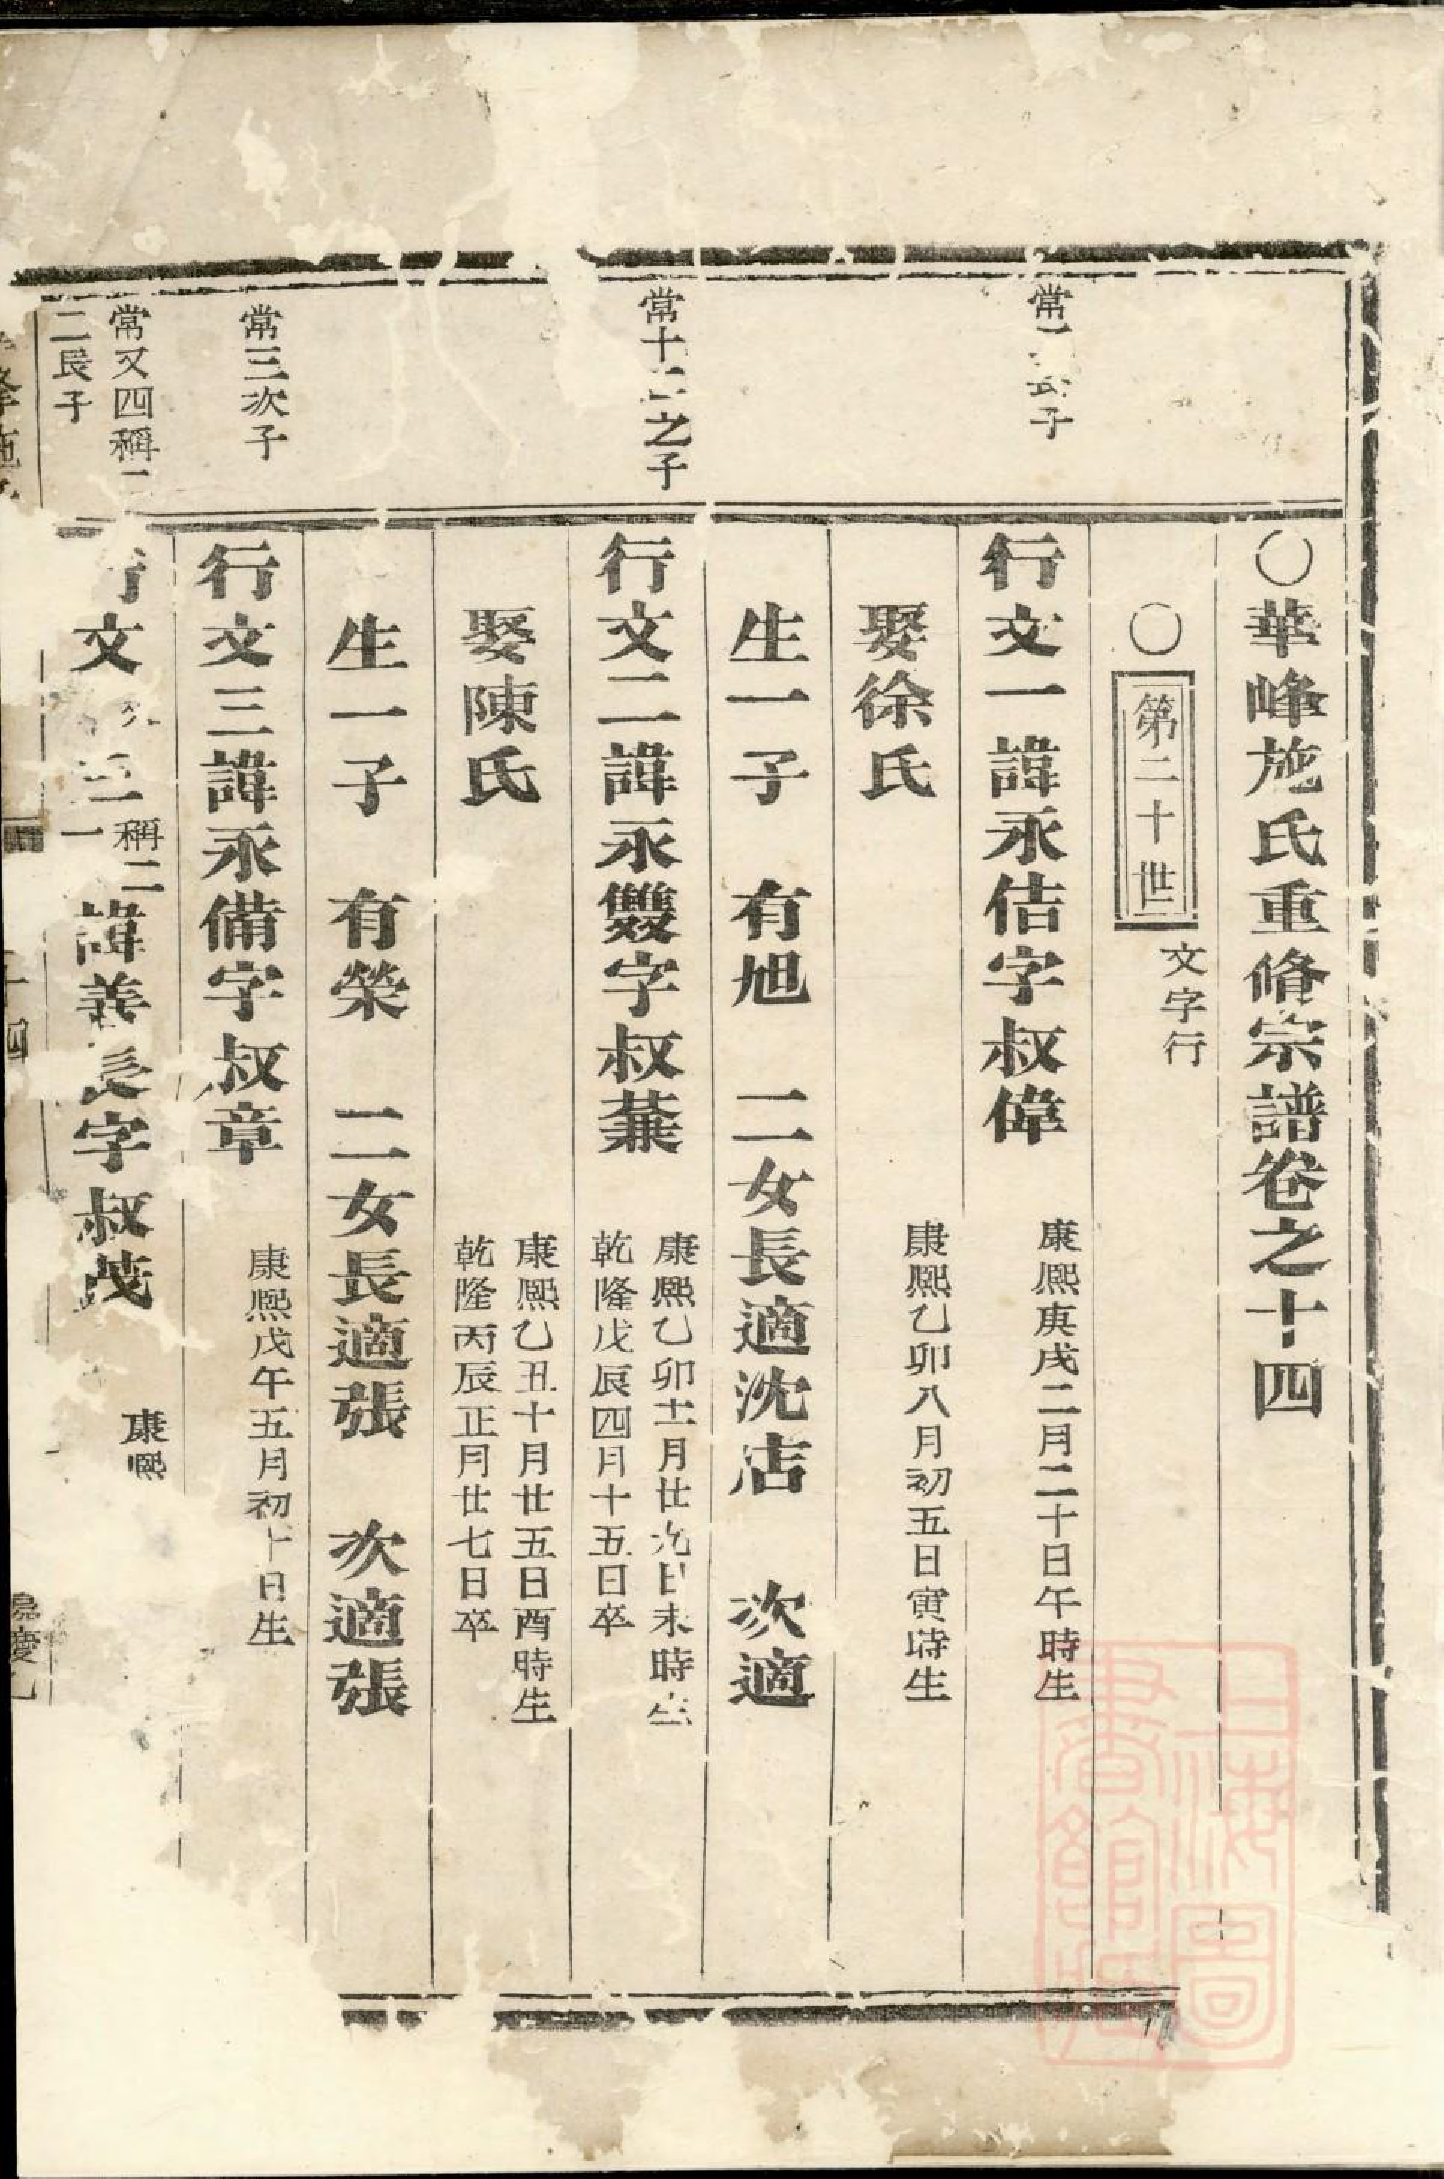 ○華峰施氏重脩宗譜卷之十四
○第二十世 文字行
常 長子
行文一諱永佶字叔偉 康熙庚戌二月二十日午時生
娶徐氏 康熙乙卯八月初五日寅時生
生一子 有旭 二女長適沈店 次適
常十二之子
行文二諱永雙字叔蒹 康熙乙卯十一月廿九日未時生
乾隆戊辰四月十五日卒
娶陳氏 康熙乙丑十月廿五日酉時生
乾隆丙辰正月廿七日卒
生一子 有榮 二女長適張 次適張
常三次子
行文三諱永備字叔章 康熙戊午五月初十日生
常又四稱二
二長子
行文 稱二 諱善長字叔茂 康熙
峰施
十四
嘉慶
上海圖書館藏